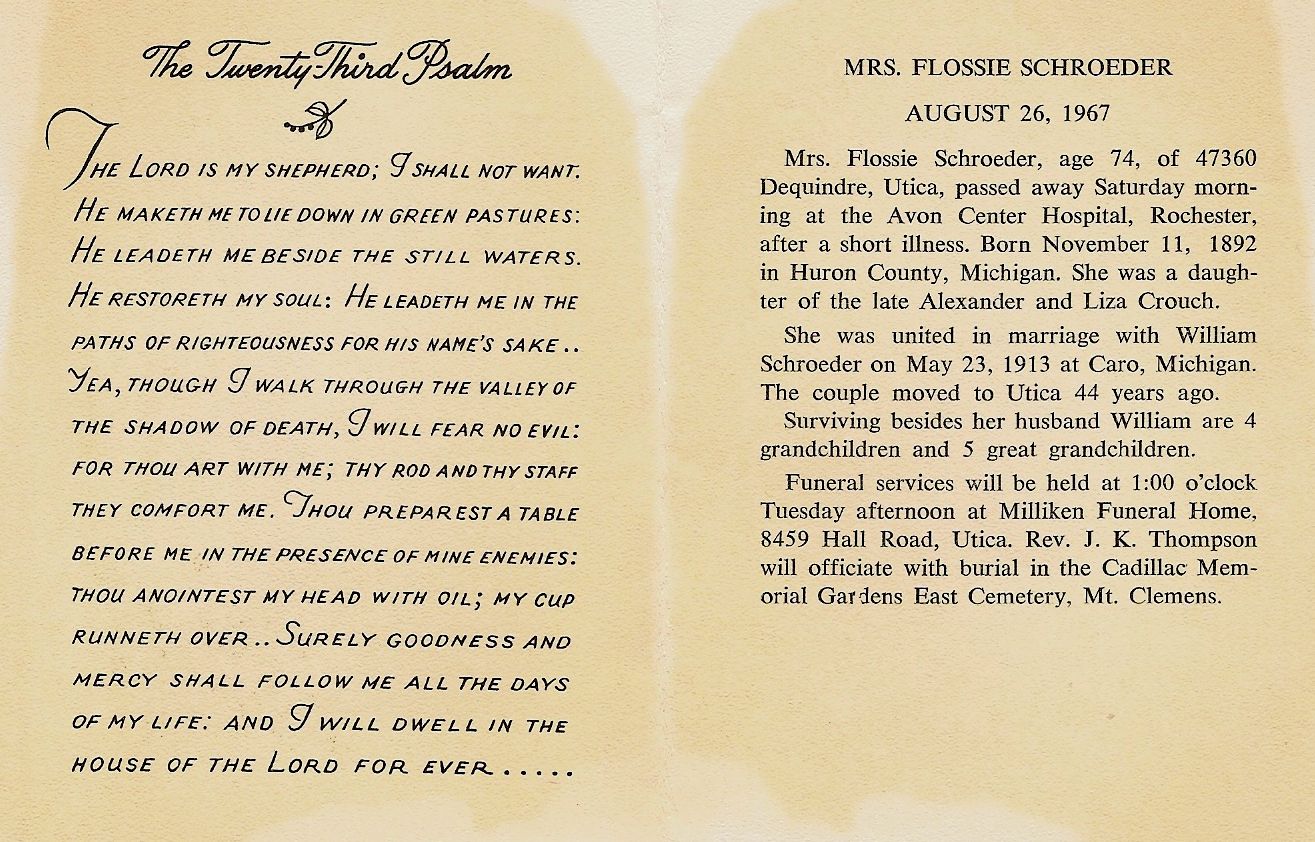 The Twenty-Third Psalm
The Lord is my shepherd; I shall not want.
He maketh me to lie down in green pastures:
He leadeth me beside the still waters.
He restoreth my soul: He leadeth me in the
paths of righteousness for his name's sake..
Yea, though I walk through the valley of
the shadow of death, I will fear no evil:
for thou art with me; thy rod and thy staff
they comfort me. Thou preparest a table
before me in the presence of mine enemies:
thou anointest my head with oil; my cup
runneth over.. Surely goodness and
mercy shall follow me all the days
of my life: and I will dwell in the
house of the Lord for ever.....
MRS. FLOSSIE SCHROEDER
AUGUST 26, 1967
Mrs. Flossie Schroeder, age 74, of 47360
Dequindre, Utica, passed away Saturday morn-
ing at the Avon Center Hospital, Rochester,
after a short illness. Born November 11, 1892
in Huron County, Michigan. She was a daugh-
ter of the late Alexander and Liza Crouch.
She was united in marriage with William
Schroeder on May 23, 1913 at Caro, Michigan.
The couple moved to Utica 44 years ago.
Surviving besides her husband William are 4
grandchildren and 5 great grandchildren.
Funeral services will be held at 1:00 o'clock
Tuesday afternoon at Milliken Funeral Home,
8459 Hall Road, Utica. Rev. J. K. Thompson
will officiate with burial in the Cadillac Mem-
orial Gardens East Cemetery, Mt. Clemens.